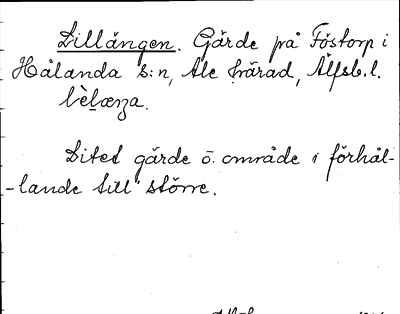 Lillängen. Gärde på Föstorp i
Hålanda s:n, Ale härad, Älfsb. l.
Litet gärde ö. område i förhål-
-lande till större.